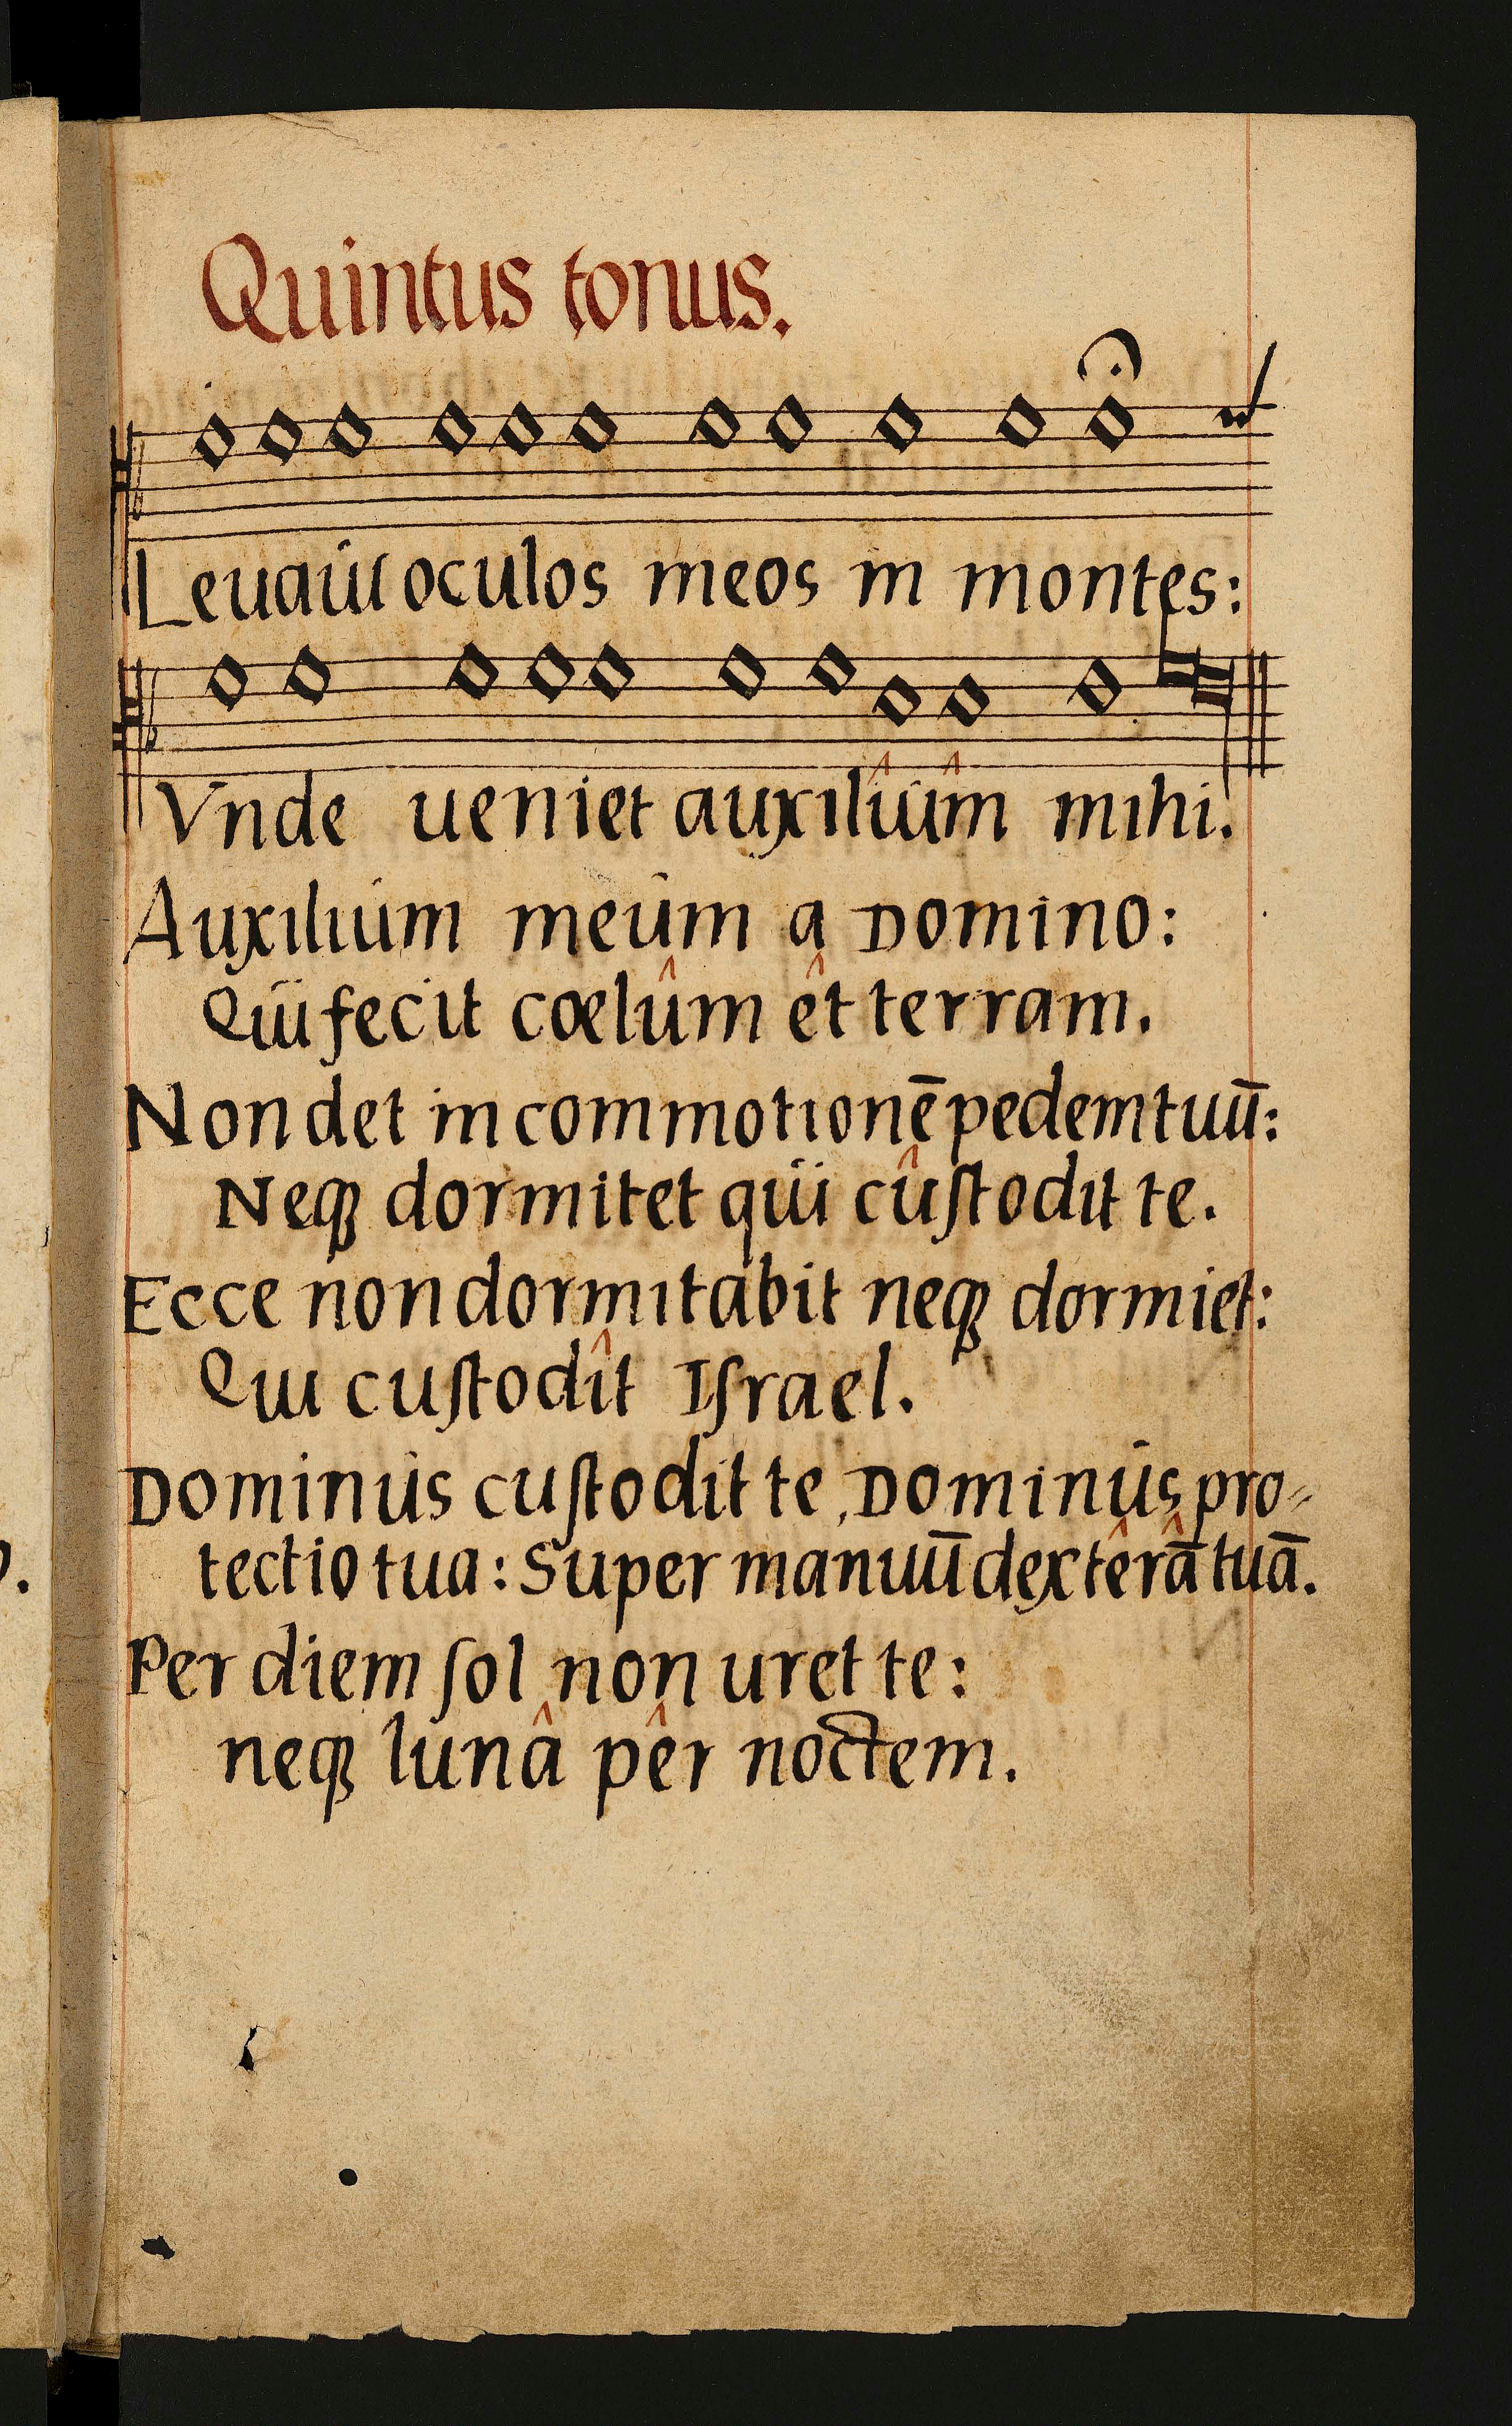 Quintus tonus.
Leuaui oculos meos in montes:
Vnde ueniet auxiliûm̂ mihi.
Auxilium meum a Domino:
Qui fecit cœlûm êt terram.
Non det in commotionē pedem tuū:
Neqꝫ dormitet qui cûſtodit te.
Ecce non dormitabit neqꝫ dormiet:
Qui cuſtodît Iſrael.
Dominus cuſtodit te, Dominus pro-
tectio tua: Super manuū dextêrā̂ tuā.
Per diem ſol non uret te:
neqꝫ lunâ pêr noctem.